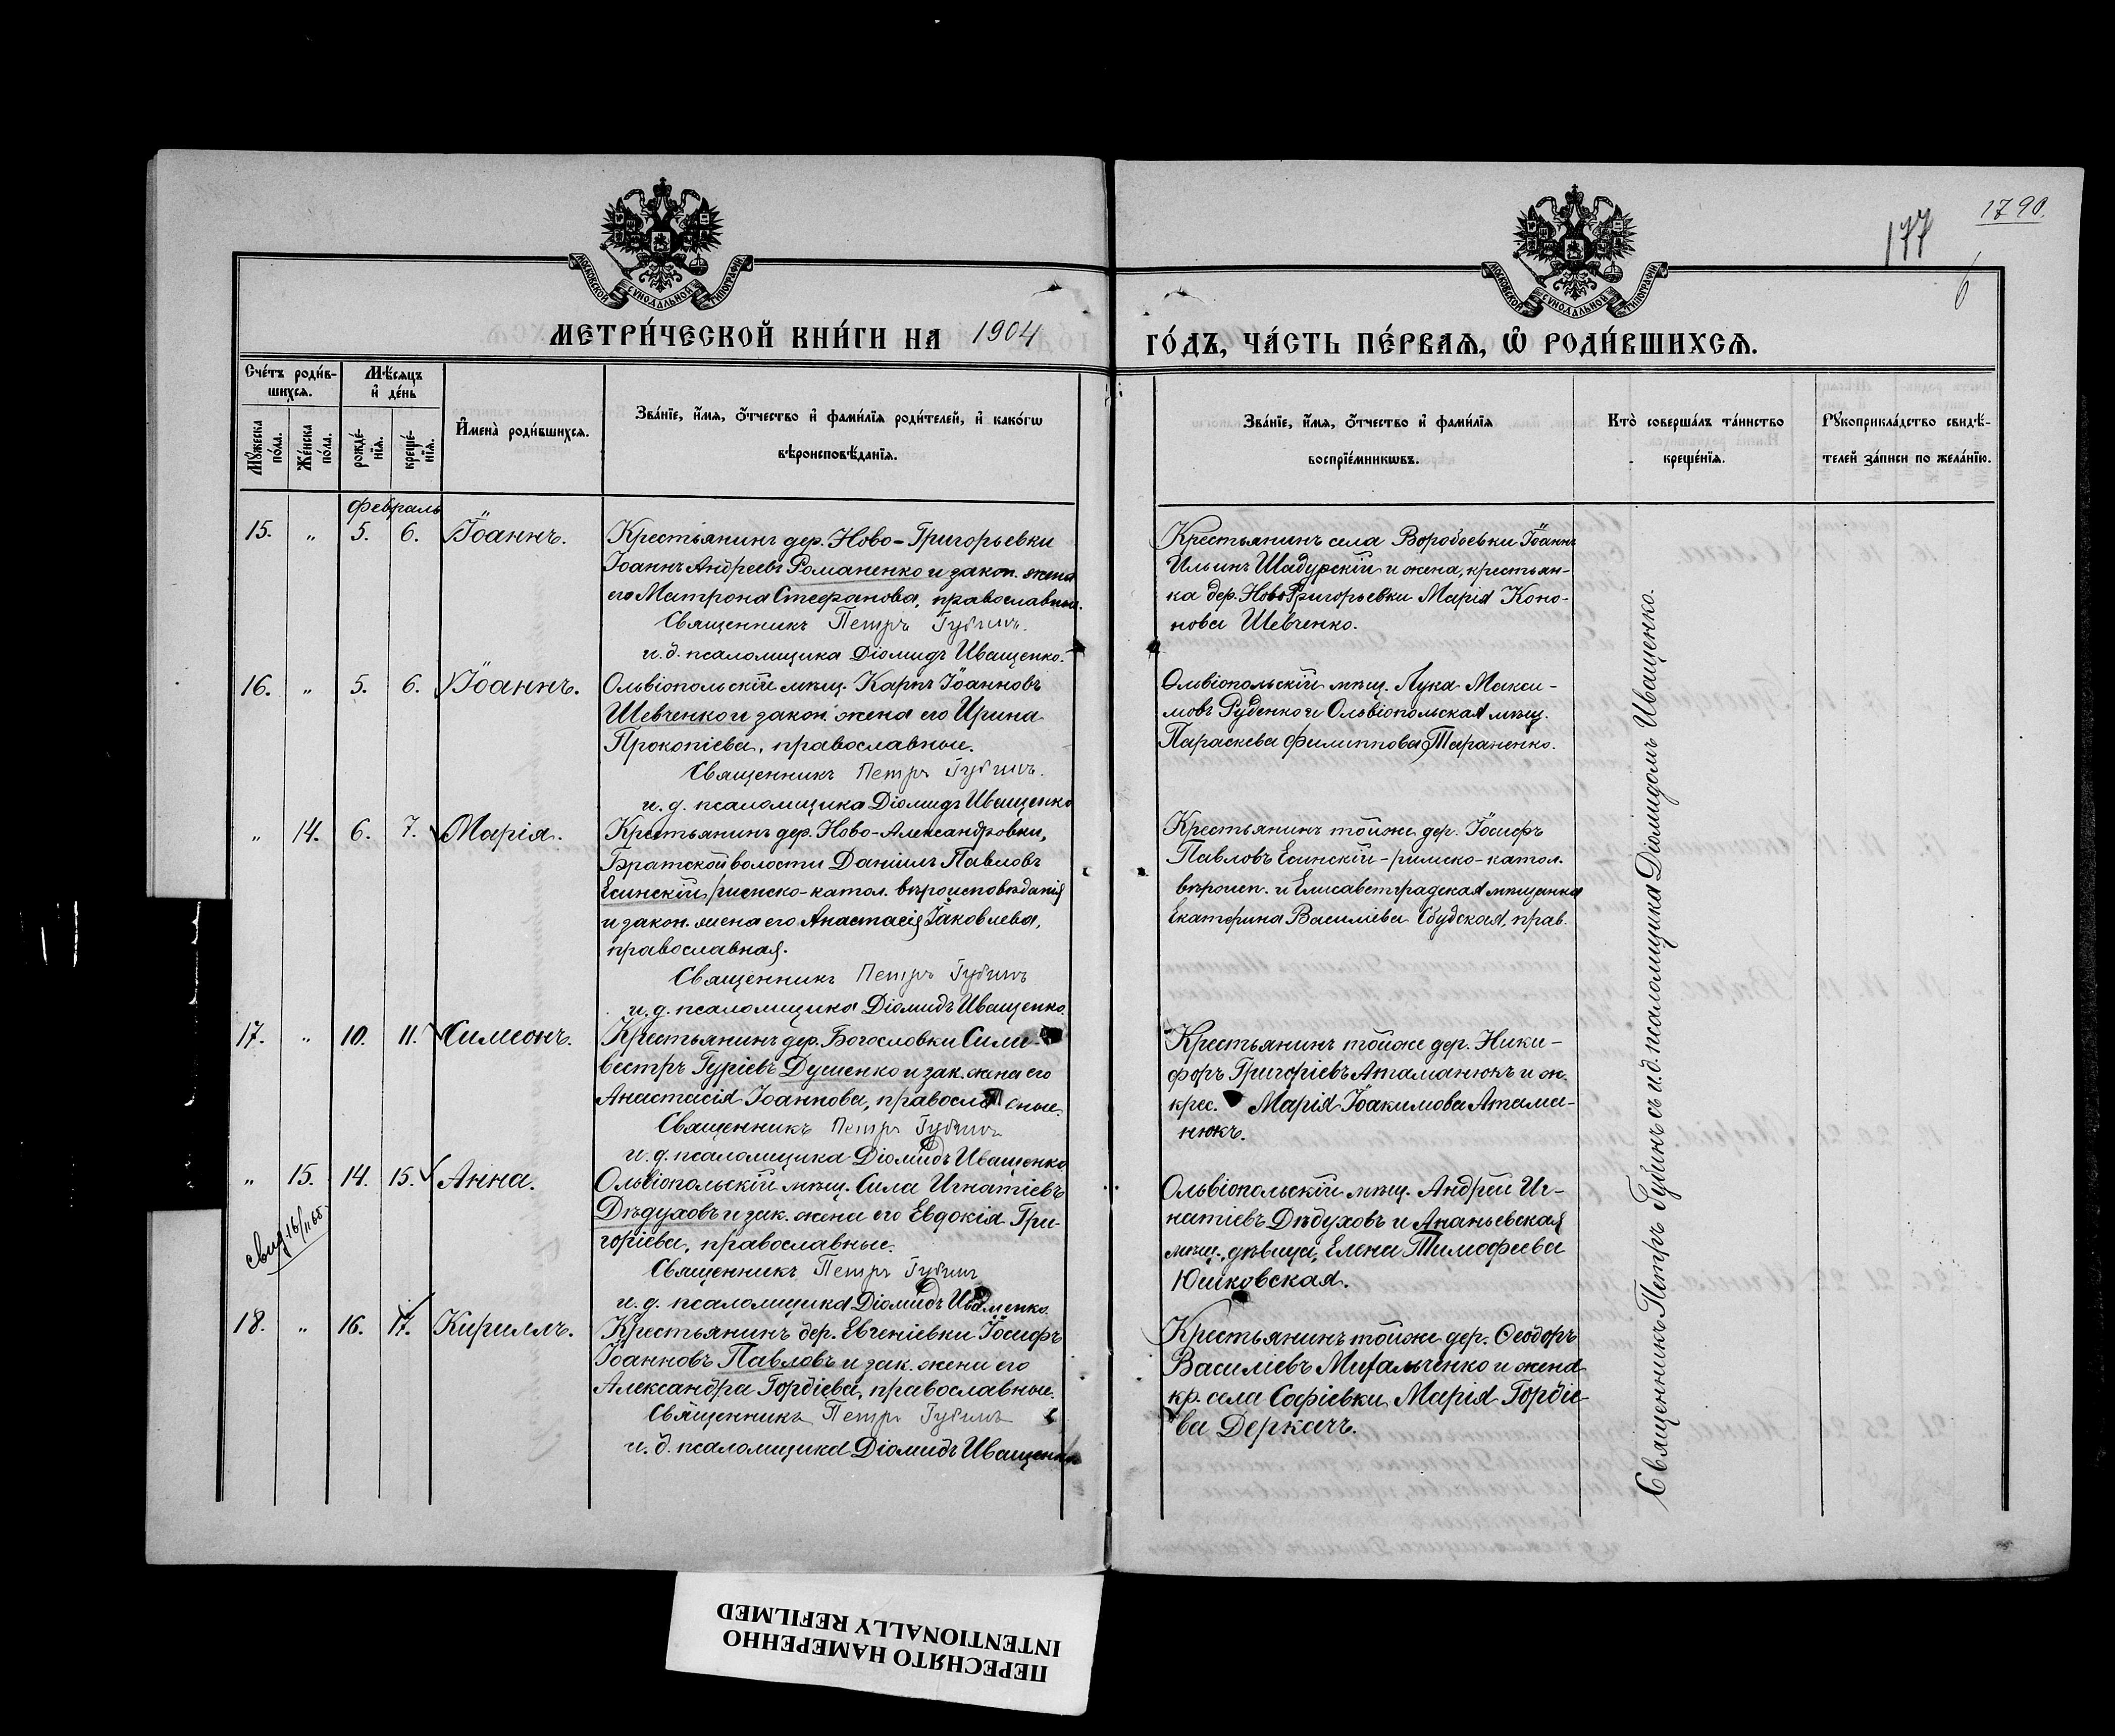 1790.
177
6
МОСКОВСКОЙ СѴНОДАЛЬНОЙ ТИПОГРАФІИ
МОСКОВСКОЙ СѴНОДАЛЬНОЙ ТИПОГРАФІИ
МЕТРИ́ЧЕСКОЙ КНИ́ГИ НА 1904 ГО́ДЪ, ЧА́СТЬ ПЕ́РВАѦ, Ѡ҆ РОДИ́ВШИХСѦ.
Сче́тъ роди́в-
шихсѧ.
Мѣ́сѧцъ
и҆ де́нь
Мꙋ́жеска по́ла.
Же́нска по́ла.
рожде́-
нїѧ.
креще́-
нїѧ.
И҆мена̀ роди́вшихсѧ.
Зва́нїе, и҆́мѧ, ѻ҆́тчество и҆ фами́лїѧ роди́телей, и҆ како́гѡ
вѣроисповѣ́данїѧ.
Зва́нїе, и҆́мѧ, ѻ҆́тчество и҆ фами́лїѧ
воспрїе́мникѡвъ.
Кто̀ соверша́лъ та́инство
креще́нїѧ.
Рꙋкоприкла́дство свидѣ́-
телей за́писи по жела́нїю.
Февраль
15. " 5. 6. Іоаннъ.
Крестьянинъ дер. Ново-Григорьевки
Іоаннъ Андреевъ Романенко и закон. жена
его Матрона Стефанова, православные.
Священникъ Петръ Губинъ.
и. д. псаломщика Діомидъ Иващенко.
Крестьянинъ села Воробьевки Іоаннъ
Ильинъ Шадурскій и жена, крестьян-
ка дер. Ново-Григорьевки Марія Коно-
нова Шевченко.
16. " 5. 6. Іоаннъ.
Ольвіопольскій мѣщ. Карпъ Іоанновъ
Шевченко и закон. жена его Ирина
Прокопіева, православные.
Священникъ Петръ Губинъ.
и. д. псаломщика Діомидъ Иващенко
Ольвіопольскій мѣщ. Лука Макси-
мовъ Руденко и Ольвіопольская мѣщ.
Параскева Филиппова Тараненко.
" 14. 6. 7. Марія.
Крестьянинъ дер. Ново-Александровки,
Братской волости Даніилъ Павловъ
Есинскій римско-катол. вѣроисповѣданія
и закон. жена его Анастасія Іаковлева,
православная.
Священникъ Петръ Губинъ
и. д. псаломщика Діомидъ Иващенко.
Крестьянинъ тойже дер. Іосифъ
Павловъ Есинскій - римско-катол.
вѣроисп. и Елисаветградская мѣщанка
Екатерина Василіева Сбудская, прав.
17. " 10. 11. Симеонъ.
Крестьянинъ дер. Богословки Силь-
вестръ Гуріевъ Душенко и зак. жена его
Анастасія Іоаннова, православные.
Священникъ Петръ Губинъ
и. д. псаломщика Діомидъ Иващенко
Крестьянинъ тойже дер. Ники-
форъ Григоріевъ Атаманюкъ и ж.
крес. Марія Іоакимова Атама-
нюкъ.
" 15. 14. 15. Анна.
Ольвіопольскій мѣщ. Сила Игнатіевъ
Дѣдуховъ и зак. жена его Евдокія Гри-
горіева, православные.
Священникъ Петръ Губинъ
и. д. псаломщика Діомидъ Иващенко.
Ольвіопольскій мѣщ. Андрей Иг-
натіевъ Дѣдуховъ и Ананьевская
мѣщ. дѣвица, Елена Тимофеева
Юшковская.
18. " 16. 17. Кириллъ.
Крестьянинъ дер. Евгеніевки Іосифъ
Іоанновъ Павловъ и зак. жена его
Александра Гордіева, православные.
Священникъ Петръ Губинъ
и. д. псаломщика Діомидъ Иващенко
Крестьянинъ тойже дер. Ѳеодоръ
Василіевъ Михальченко и жена
кр. села Софіевки Марія Гордіе-
ва Деркачъ.
Священникъ Петръ Губинъ съ и. д. псаломщика Діомидомъ Иващенко.
ПЕРЕСНЯТО НАМЕРЕННО
INTENTIONALLY REFILMED